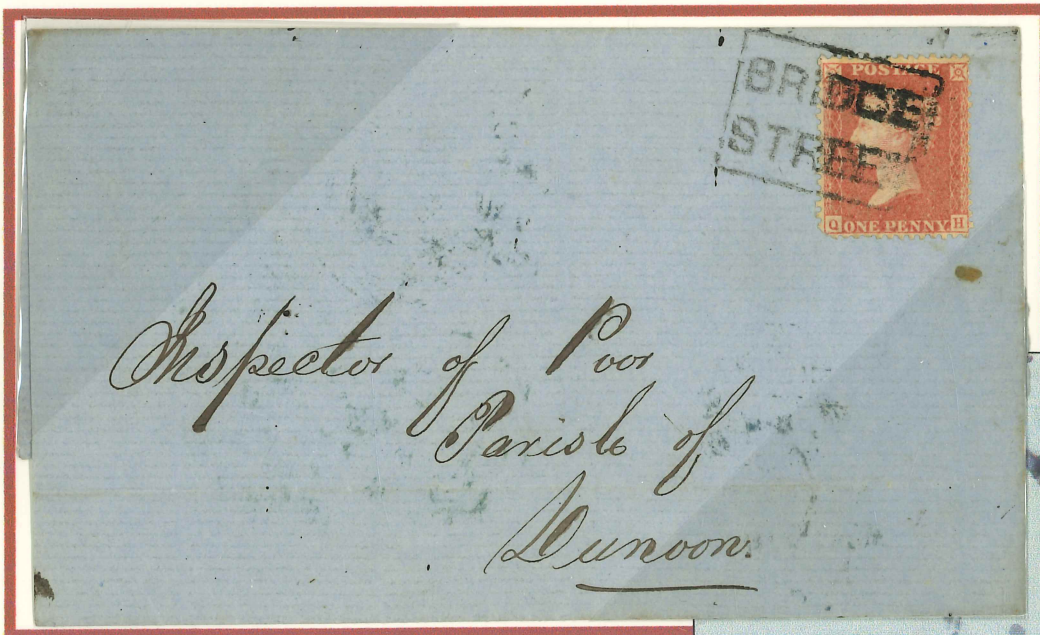 BRIDGE
STREET
POSTAGE
Q ONE PENNY H
Inspector of Poor
Parish of
Dunoon.